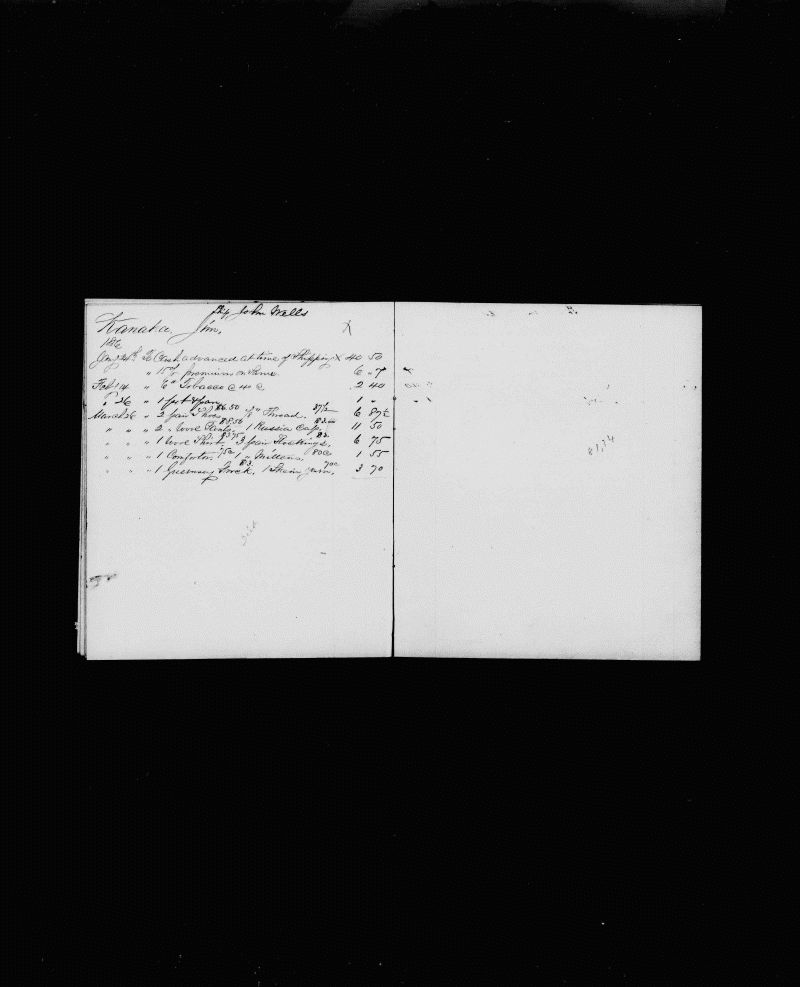 Ship John Wells
Kanaka Jim,
X
To Cash advanced at time of Shipping X 40 50
" 15 % premium on Same 6 " 7
Feb 14 " 6 " Tobacco @ 40 c 2 40
" 26 " 1 pot & pan 1 "
March 26 " 2 pair Shoes $6.50 Thread 37½ 6 87½
" " " 2 " Wool Pants $8.50 1 Russia Cap, $3.00 11 50
" " " 1 Wool Shirt $3.75 3 pair Stockings, $3. 6 75
" " " 1 Comforter 75c 1 " Mittens, 80c 1 55
" " " 1 Guernsey Frock, $3. 1 Skein yarn, 70c 3 70
81,34